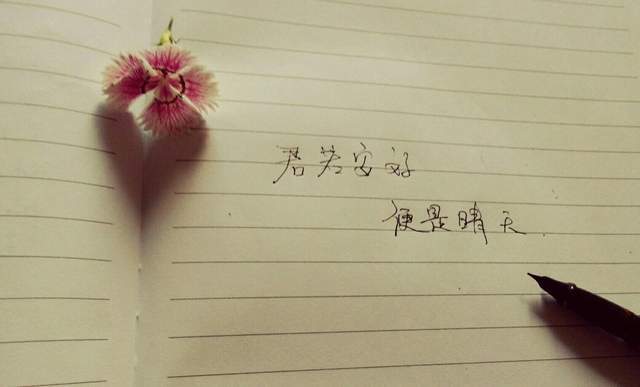 君若安好
便是晴天.